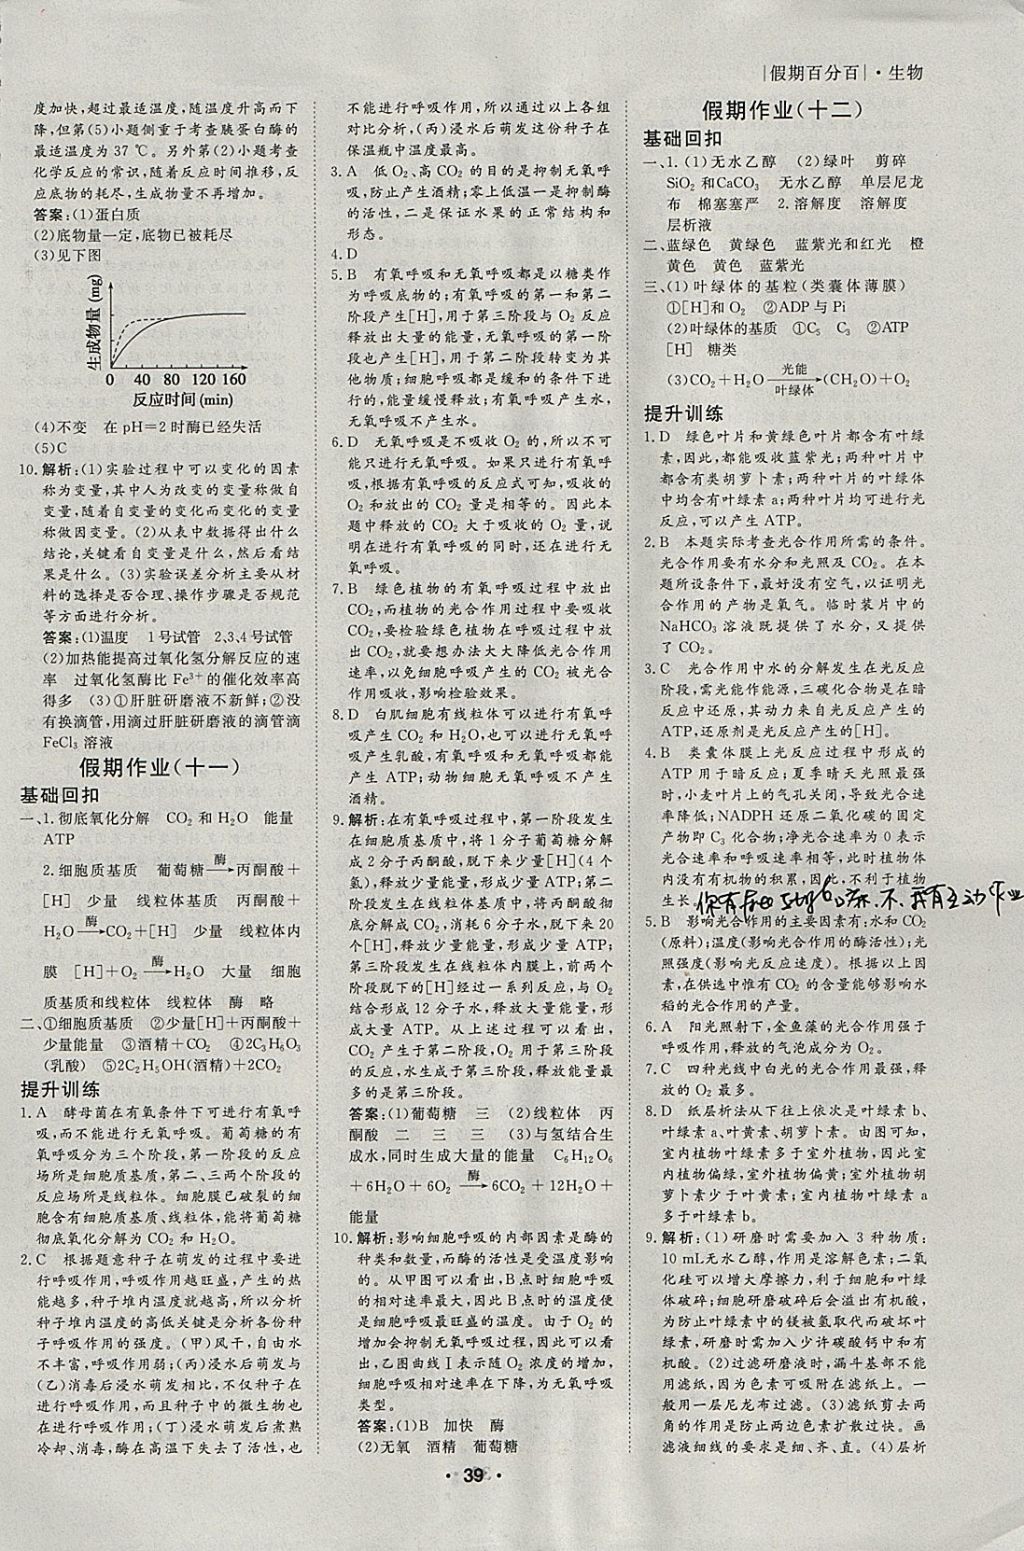 |假期百分百|·生物
度加快,超过最适温度,随着温度升高而下
降,但第(5)小题侧重于考查胰蛋白酶的
最适温度为37 ℃。另外第(2)小题考查
化学反应的常识,随着反应时间推移,反
应底物的耗尽,生成物量不再增加。
答案:(1)蛋白质
(2)底物量一定,底物已被耗尽
(3)见下图
生成物量(mg)
0 40 80 120 160
反应时间(min)
(4)不变 在pH=2时酶已经失活
(5)C
10.解析:(1)实验过程中可以变化的因素
称为变量,其中人为改变的变量称做自
变量,随着自变量的变化而变化的变量
称做因变量。(2)从表中数据得出什么
结论,关键看自变量是什么,然后看结
果是什么。(3)实验误差分析主要从材
料的选择是否合理、操作步骤是否规范
等方面进行分析。
答案:(1)温度 1号试管 2,3,4号试管
(2)加热能提高过氧化氢分解反应的速
率 过氧化氢酶比Fe³⁺的催化效率高
得多 (3)①肝脏研磨液不新鲜;②没
有换滴管,用滴过肝脏研磨液的滴管滴
FeCl₃溶液
假期作业(十一)
基础回扣
一、1.彻底氧化分解 CO₂和H₂O 能量
ATP
2.细胞质基质 葡萄糖—酶→丙酮酸+
[H] 少量 线粒体基质 丙酮酸+
H₂O—酶→CO₂+[H] 少量 线粒体内
膜 [H]+O₂—酶→H₂O 大量 细胞
质基质和线粒体 线粒体 酶 略
二、①细胞质基质 ②少量[H]+丙酮酸+
少量能量 ③酒精+CO₂ ④2C₃H₆O₃
(乳酸) ⑤2C₂H₅OH(酒精)+2CO₂
提升训练
1.A 酵母菌在有氧条件下可进行有氧呼
吸,而不能进行无氧呼吸。葡萄糖的有
氧呼吸分为三个阶段,第一阶段的反应
场所是细胞质基质,第二、三两个阶段的
反应场所是线粒体。细胞膜已破裂的细
胞含有细胞质基质、线粒体,能将葡萄糖
彻底氧化分解为CO₂和H₂O。
2.C 根据题意种子在萌发的过程中要进
行呼吸作用,呼吸作用越旺盛,产生的热
越多,种子堆内温度就越高;所以分析种
子堆内温度的高低关键是分析各组份种
子呼吸作用的强度。(甲)风干,自由水
不丰富,呼吸作用弱;(丙)浸水后萌发与
(乙)消毒后浸水萌发相比,不仅种子在
进行呼吸作用,而且种子中的微生物也
在进行呼吸作用;(丁)浸水萌发后煮熟
冷却、消毒,酶在高温下失去了活性,也
不能进行呼吸作用,所以通过以上各组
对比分析,(丙)浸水后萌发这份种子在
保温瓶中温度最高。
3.A 低O₂、高CO₂的目的是抑制无氧呼
吸,防止产生酒精;零上低温一是抑制酶
的活性,二是保证水果的正常结构和
形态。
4.D
5.B 有氧呼吸和无氧呼吸都是以糖类作
为呼吸底物的;有氧呼吸的第一和第二
阶段产生[H],用于第三阶段与O₂反应
释放出大量的能量,无氧呼吸的第一阶
段也产生[H],用于第二阶段转变为其
他物质;细胞呼吸都是缓和的条件下进
行的,能量缓慢释放;有氧呼吸产生水,
无氧呼吸不产生水。
6.D 无氧呼吸是不吸收O₂的,所以不可
能只进行无氧呼吸。如果只进行有氧呼
吸,根据有氧呼吸的反应式可知,吸收的
O₂和放出的CO₂是相等的。因此本
题中释放的CO₂大于吸收的O₂量,说
明在进行有氧呼吸的同时,还在进行无
氧呼吸。
7.B 绿色植物的有氧呼吸过程中放出
CO₂,而植物的光合作用过程中要吸收
CO₂,要检验绿色植物在呼吸过程中放
出CO₂,就要想办法大大降低光合作用
速率,以免细胞呼吸产生的CO₂被光合
作用吸收,影响检验效果。
8.D 白肌细胞有线粒体可以进行有氧呼
吸产生CO₂和H₂O,也可以进行无氧呼
吸产生乳酸,有氧呼吸和无氧呼吸都能
产生ATP;动物细胞无氧呼吸不产生
酒精。
9.解析:在有氧呼吸过程中,第一阶段发生
在细胞质基质中,将1分子葡萄糖分解
成2分子丙酮酸,脱下来少量[H](4个
氢),释放少量能量,形成少量ATP。第二
阶段发生在线粒体基质中,将丙酮酸分
解成CO₂,消耗6分子水,脱下来20
个[H],释放少量能量,形成少量ATP。
第三阶段发生在线粒体内膜上,前两个
阶段脱下的[H]经过一系列反应,与O₂
结合形成12分子水,释放大量能量,形
成大量ATP。从上述过程可以看出,
CO₂产生于第二阶段,O₂用于第三阶段
的反应,水生成于第三阶段,释放能量最
多的是第三阶段。
答案:(1)葡萄糖 三 (2)线粒体 丙
酮酸 二 三 三 (3)与氢结合生
成水,同时生成大量的能量 C₆H₁₂O₆
+6H₂O+6O₂—酶→6CO₂+12H₂O+
能量
10.解析:影响细胞呼吸的内部因素是酶的
种类和数量,而酶的活性是受温度影响
的。从甲图可以看出,B点时细胞呼吸
的相对速率最大,因此B点时的温度便
是细胞呼吸最旺盛的温度。由于O₂的
增加会抑制无氧呼吸过程,因此可以看
出,乙图曲线Ⅰ表示随O₂浓度的增加,
细胞呼吸相对速率在下降,为无氧呼吸
类型。
答案:(1)B 加快 酶
(2)无氧 酒精 葡萄糖
假期作业(十二)
基础回扣
一、1.(1)无水乙醇 (2)绿叶 剪碎
SiO₂和CaCO₃ 无水乙醇 单层尼龙
布 棉塞塞严 2.溶解度 溶解度
层析液
二、蓝绿色 黄绿色 蓝紫光和红光 橙
黄色 黄色 蓝紫光
三、(1)叶绿体的基粒(类囊体薄膜)
①[H]和O₂ ②ADP与Pi
(2)叶绿体的基质 ①C₅ C₃ ②ATP
[H] 糖类
(3)CO₂+H₂O—光能/叶绿体→(CH₂O)+O₂
提升训练
1.D 绿色叶片和黄绿色叶片都含有叶绿
素,因此,都能吸收蓝紫光;两种叶片都
含有类胡萝卜素;两种叶片的叶绿体
中均含有叶绿素a;两种叶片均可进行光
反应,可以产生ATP。
2.B 本题实际考查光合作用所需的条件。
光合作用要有水分和光照及CO₂。在本
题所设条件下,最好没有空气,以证明光
合作用的产物是氧气。临时装片中的
NaHCO₃溶液既提供了水分,又提供
了CO₂。
3.C 光合作用中水的分解发生在光反应
阶段,需光能作能源,三碳化合物是在暗
反应中还原,其动力来自光反应产生的
ATP,还原剂是光反应产生的[H]。
4.B 类囊体膜上光反应过程中形成的
ATP用于暗反应;夏季晴天光照最强
时,小麦叶片上的气孔关闭,导致光合速
率降低;NADPH还原二氧化碳的固定
产物即C₃化合物;净光合速率为0表示
光合速率和呼吸速率相等,此时植物体
内没有有机物的积累,因此,不利于植物
生长。
5.B 影响光合作用的主要因素有:水和CO₂
(原料);温度(影响光合作用的酶活性);光
照强度(影响光反应速度)。根据以上原
因,在供选中惟有CO₂的含量能够影响水
稻的光合作用的产量。
6.A 阳光照射下,金鱼藻的光合作用强于
呼吸作用,释放的气泡成分为O₂。
7.C 四种光线中白光的光合作用最强,释
放的O₂最多。
8.D 纸层析法从下往上依次是叶绿素b、
叶绿素a、叶黄素、胡萝卜素。由图可知,
室内植物叶绿素多于室外植物,因此
室内植物偏绿,室外植物偏黄;室外植物胡
萝卜素少于叶黄素;室内植物叶绿素a
多于叶绿素b。
9.解析:(1)研磨时需要加入3种物质:
10 mL无水乙醇,作用是溶解色素;二氧
化硅可以增大摩擦力,利于细胞和叶绿
体破碎;细胞研磨破碎后会溢出有机酸,
为防止叶绿素中的镁被氢取代而破坏叶
绿素,研磨时需加入少许碳酸钙中和有
机酸。(2)过滤研磨液时,漏斗基部不能
用滤纸,因为色素可吸附在滤纸上。一
般用一层尼龙布过滤。(3)滤纸剪去两
角的作用是防止两边色素扩散过快。画
滤液细线的要求是细、齐、直。(4)层析
·39·